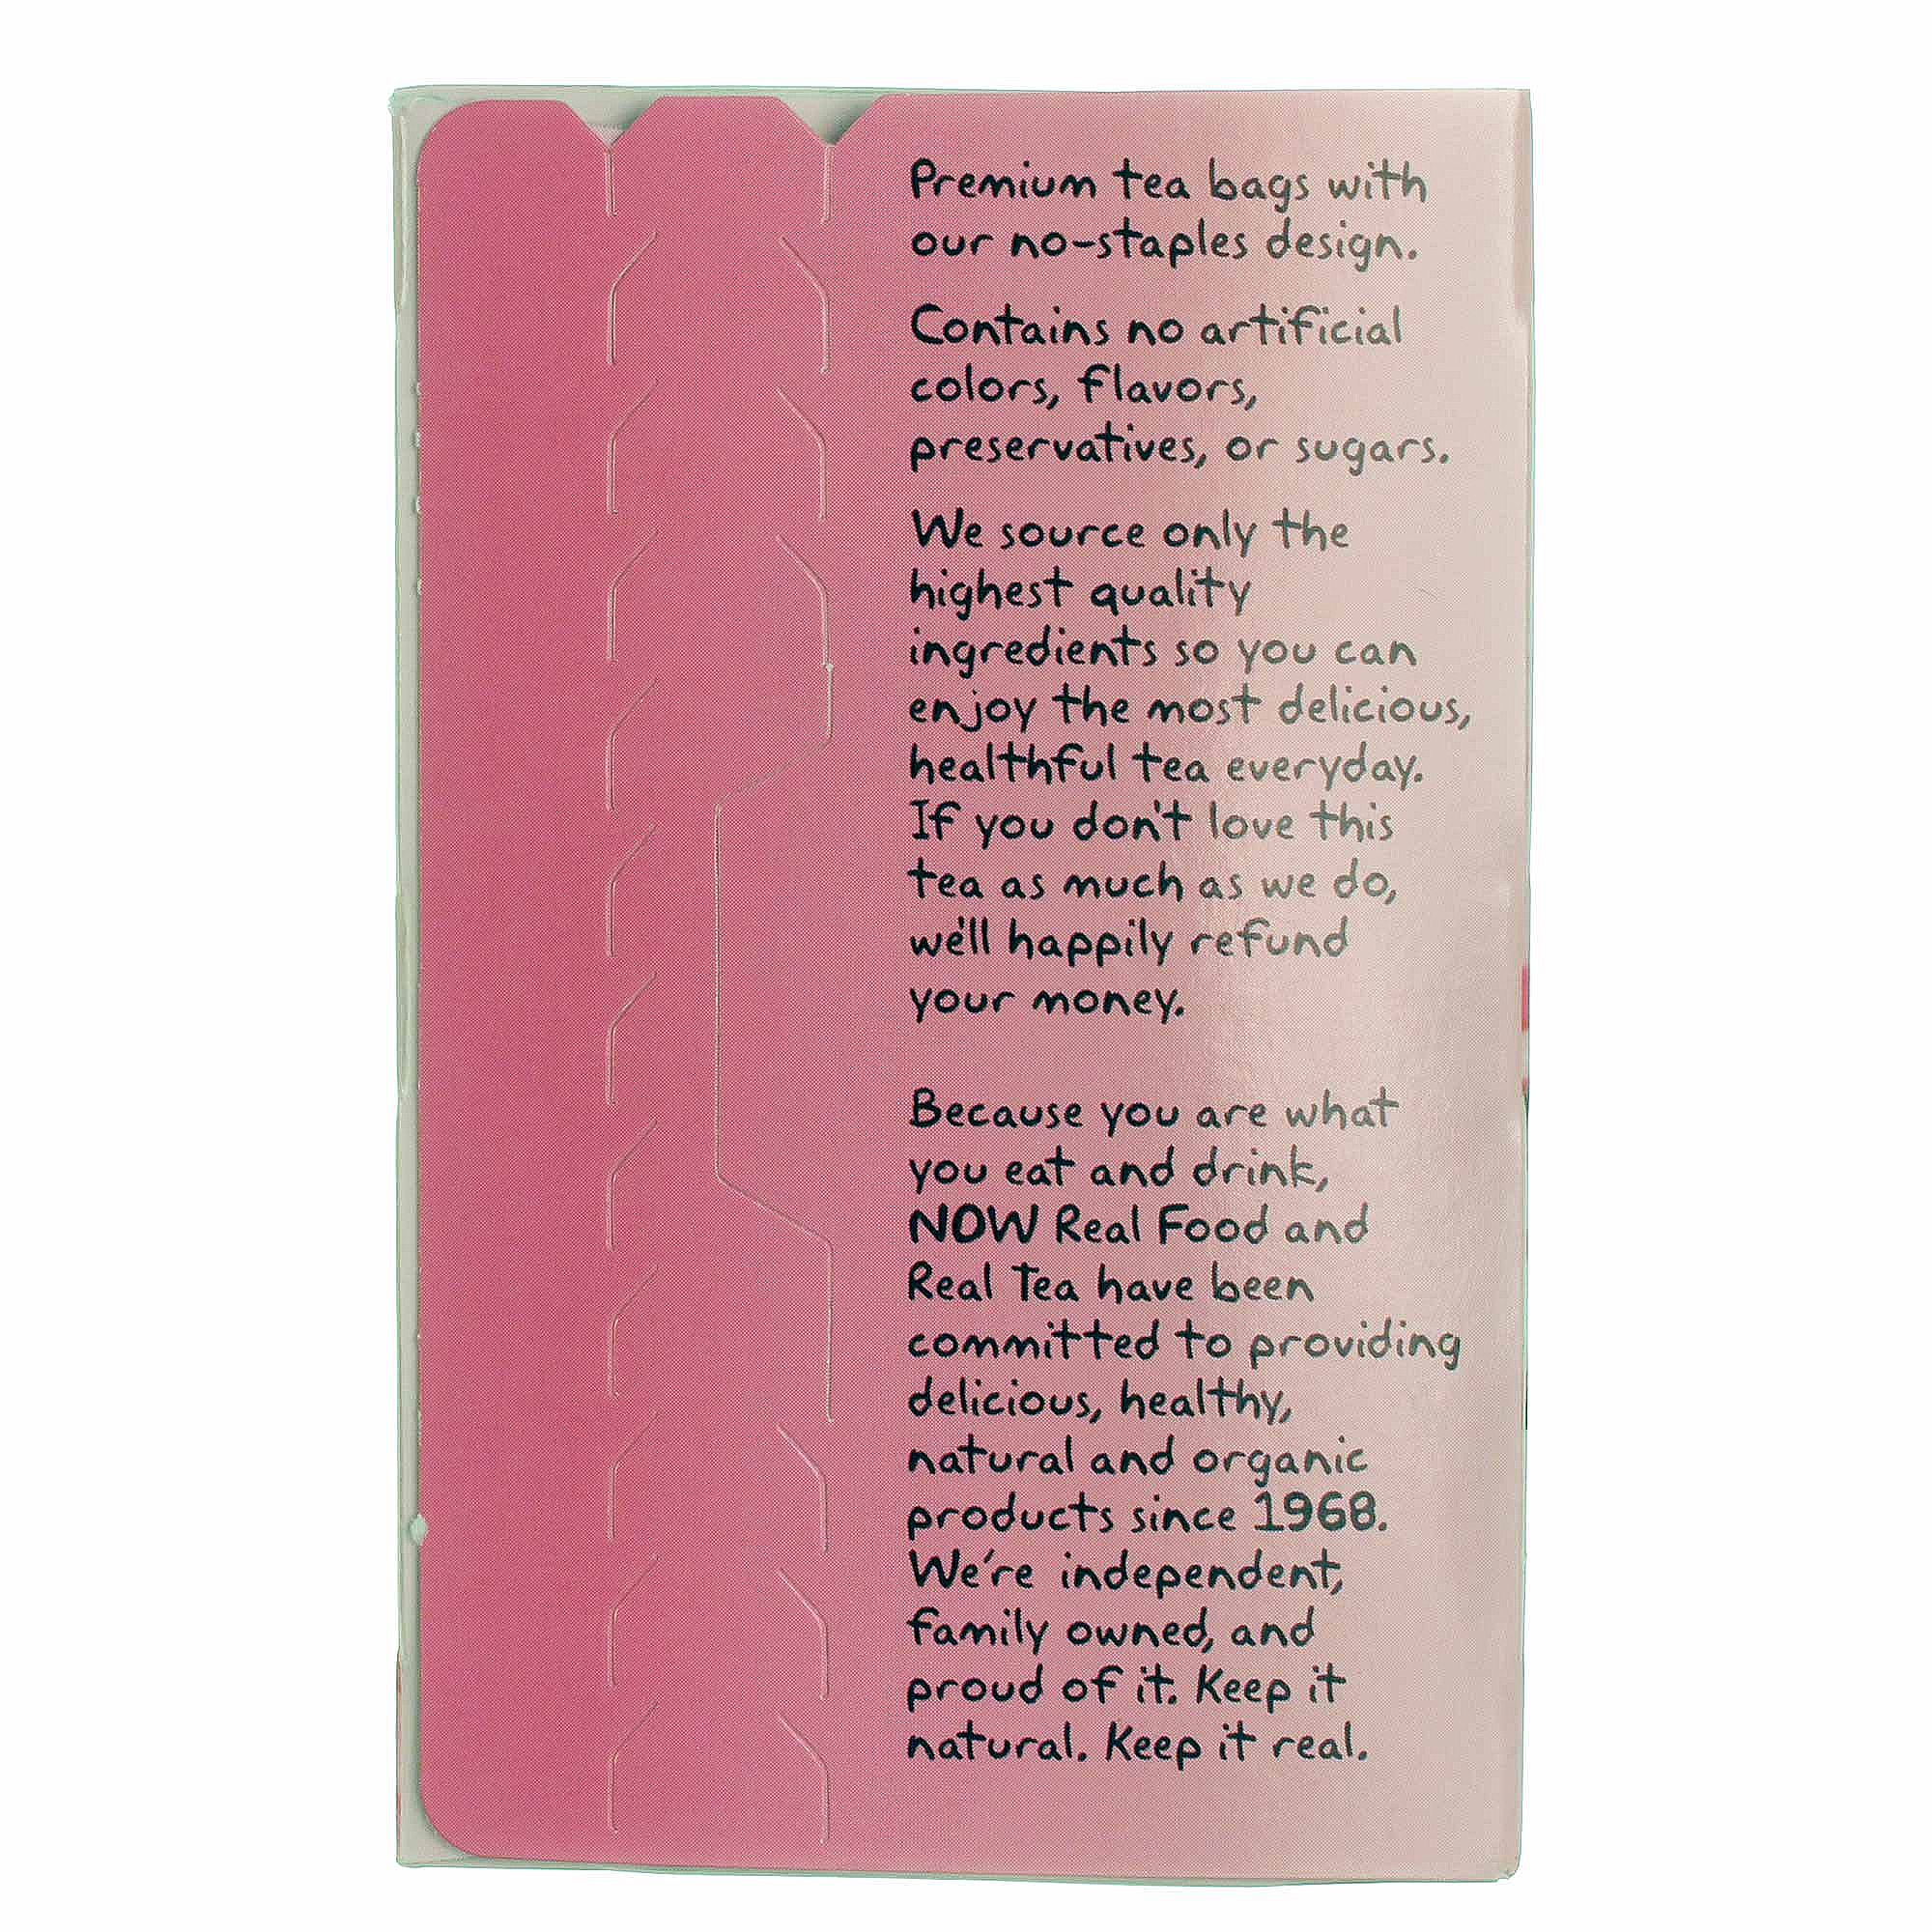 Premium tea bags with
our no-staples design.
Contains no artificial
colors, flavors,
preservatives, or sugars.
We source only the
highest quality
ingredients so you can
enjoy the most delicious,
healthful tea everyday.
If you don't love this
tea as much as we do,
we'll happily refund
your money.
Because you are what
you eat and drink,
NOW Real Food and
Real Tea have been
committed to providing
delicious, healthy,
natural and organic
products since 1968.
We're independent,
family owned, and
proud of it. Keep it
natural. Keep it real.